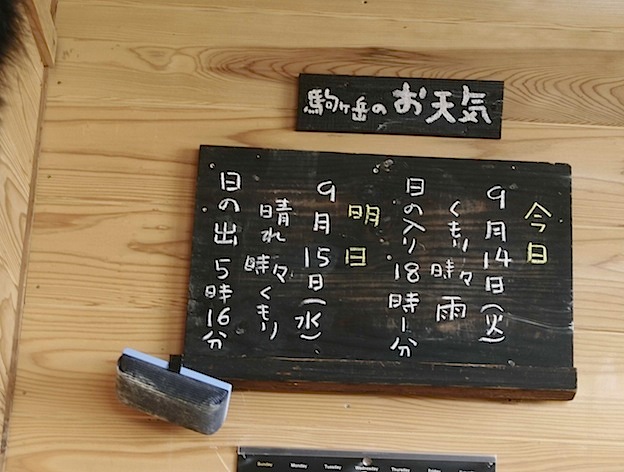 駒ヶ岳のお天気
今日
9月14日(火)
くもり時々雨
日の入り18時1分
明日
9月15日(水)
晴れ時々くもり
日の出5時16分
Sunday Monday Tuesday Wednesday Thursday Friday